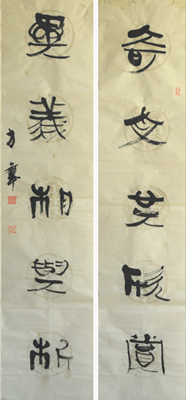 奇文共欣賞
疑義相與析